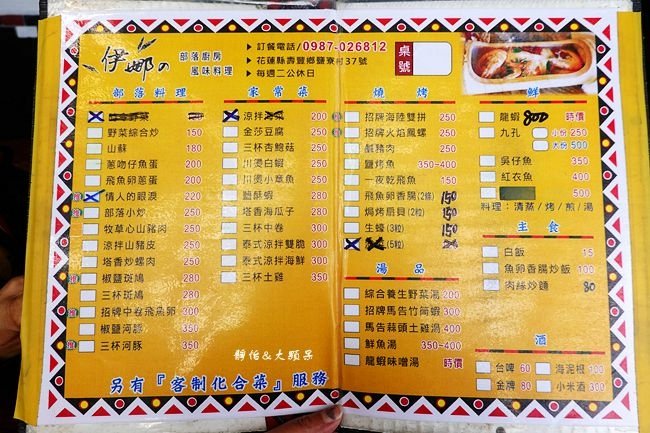 伊娜の
部落廚房
風味料理
▶訂餐電話/0987-026812
▶花蓮縣壽豐鄉鹽寮村37號
▶每週二公休日
桌號
部落料理
野菜綜合炒 150
山蘇 180
蔥吻仔魚蛋 200
飛魚卵蔥蛋 200
情人的眼淚 220
部落小炒 250
牧草心山豬肉 250
涼拌山豬皮 250
塔香炒螺肉 250
椒鹽斑鳩 280
三杯斑鳩 280
招牌中卷飛魚卵 300
椒鹽河豚 350
三杯河豚 350
家常菜
涼拌 200
金莎豆腐 250
三杯杏鮑菇 250
川燙白蝦 250
川燙小章魚 250
鹽酥蝦 280
塔香海瓜子 280
三杯中卷 300
泰式涼拌雙脆 300
泰式涼拌海鮮 300
三杯土雞 350
燒烤
招牌海陸雙拼 250
招牌火焰鳳螺 250
鹹豬肉 250
鹽烤魚 350-400
一夜乾飛魚 150
飛魚卵香腸(2條) 150
焗烤扇貝(2粒) 150
生蠔(3粒) 150
(5粒)
湯品
綜合養生野菜湯 200
招牌馬告竹筒蝦 300
馬告蒜頭土雞湯 400
鮮魚湯 350-400
龍蝦味噌湯 時價
鮮
龍蝦 800 時價
九孔 小份 250
大份 500
吳仔魚 350
紅衣魚 400
500
料理：清蒸/烤/煎/湯
主食
白飯 15
魚卵香腸炒飯 100
肉絲炒麵 80
酒
台啤 60 海泥根 100
金牌 80 小米酒 300
靜怡&大顆呆
另有『客制化合菜』服務